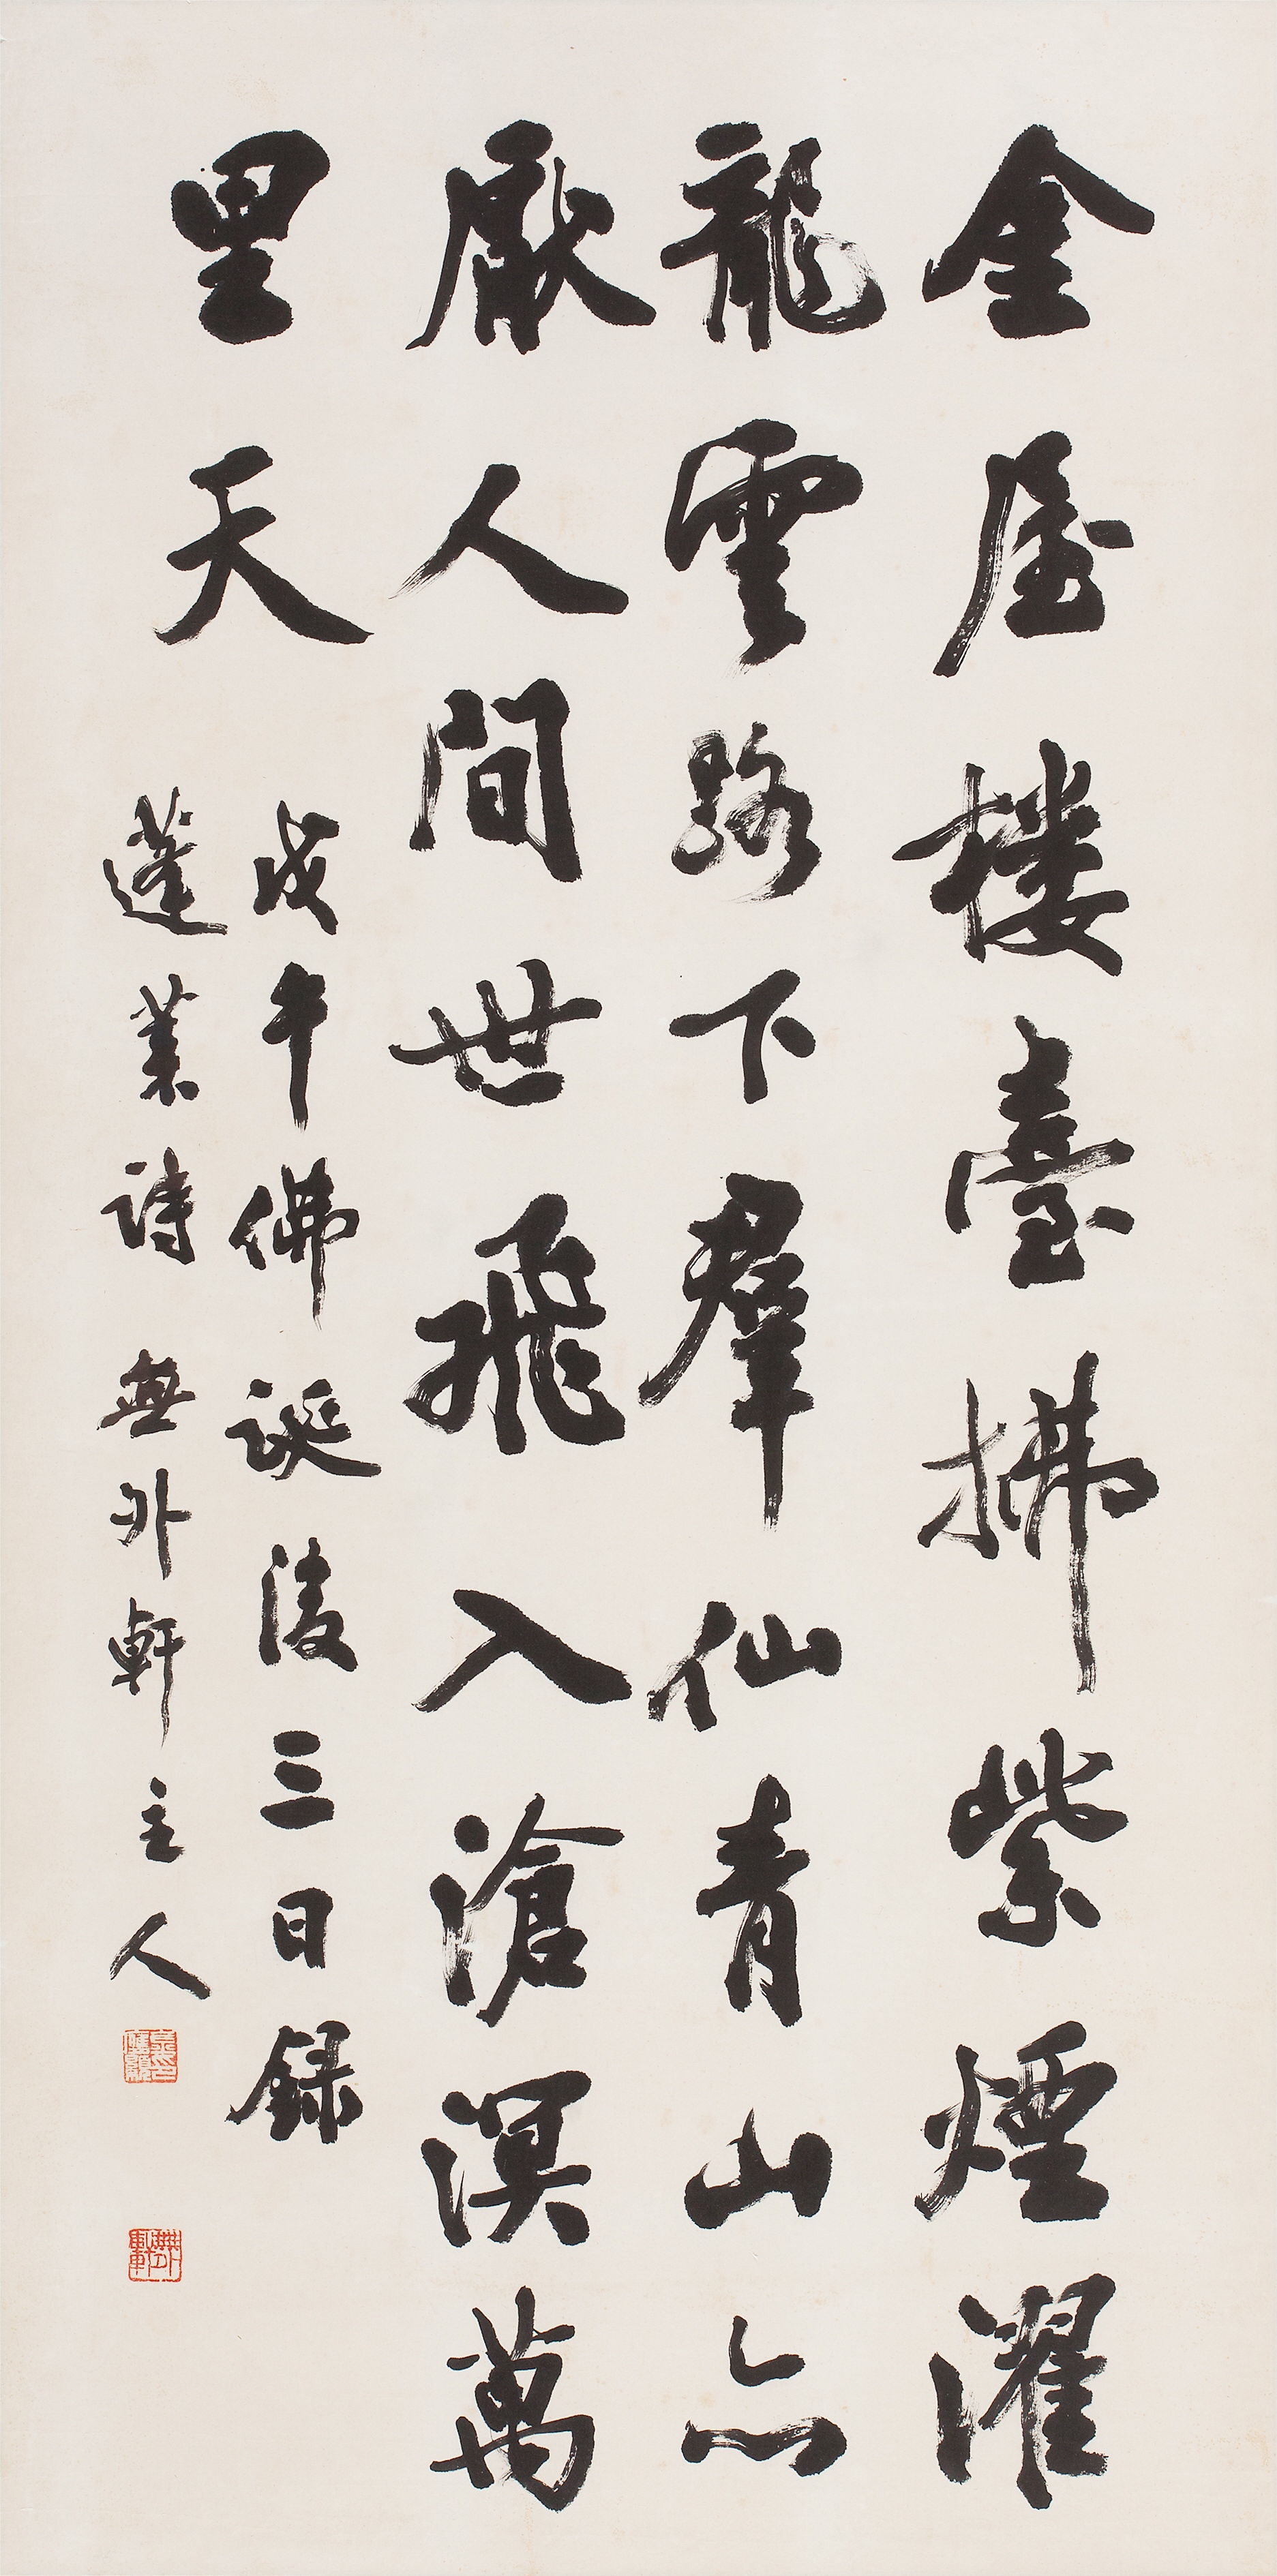 金屋楼臺拂紫煙濯
龍雲路下群仙青山亦
厭人間世飛入滄溟萬
里天
戊午佛誕後三日録
蓬莱詩 無外軒主人
無外軒